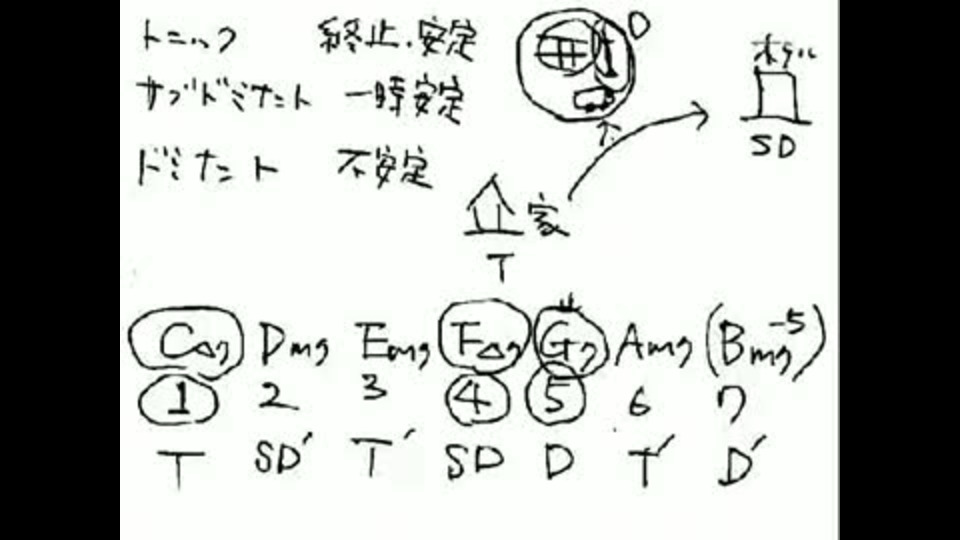 トニック 終止.安定
サブドミナント 一時安定
ドミナント 不安定
D
ホテル
SD
家
T
C△7 Dm7 Em7 F△7 G7 Am7 (Bm7-5)
1 2 3 4 5 6 7
T SD′ T′ SD D T′ D′